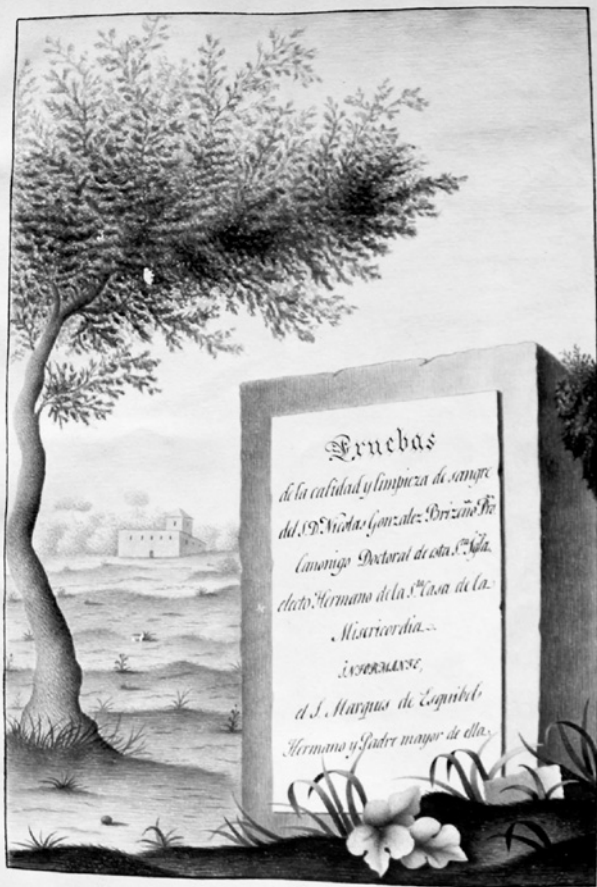 Pruebas
de la calidad y limpieza de sangre
del S.D. Nicolas Gonzalez Brizeño Pro
Canonigo Doctoral de esta S.ta Ygla.
electo Hermano de la S.ta Casa de la
Misericordia.
INFORMANSE,
el S. Marqus de Esquibel,
Hermano y Padre mayor de ella.